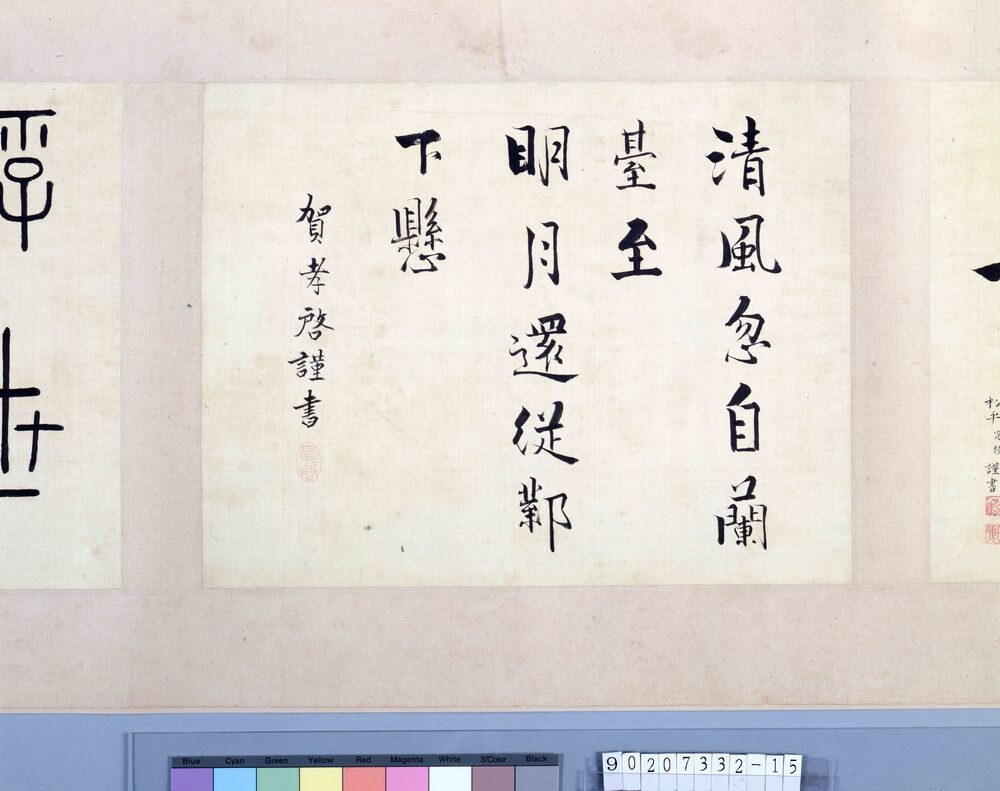 松平
謹書
清風忽自蘭
臺至
明月還從鄴
下懸
賀孝啓謹書
Blue Cyan Green Yellow Red Magenta White 3/Color Black
90207332-15